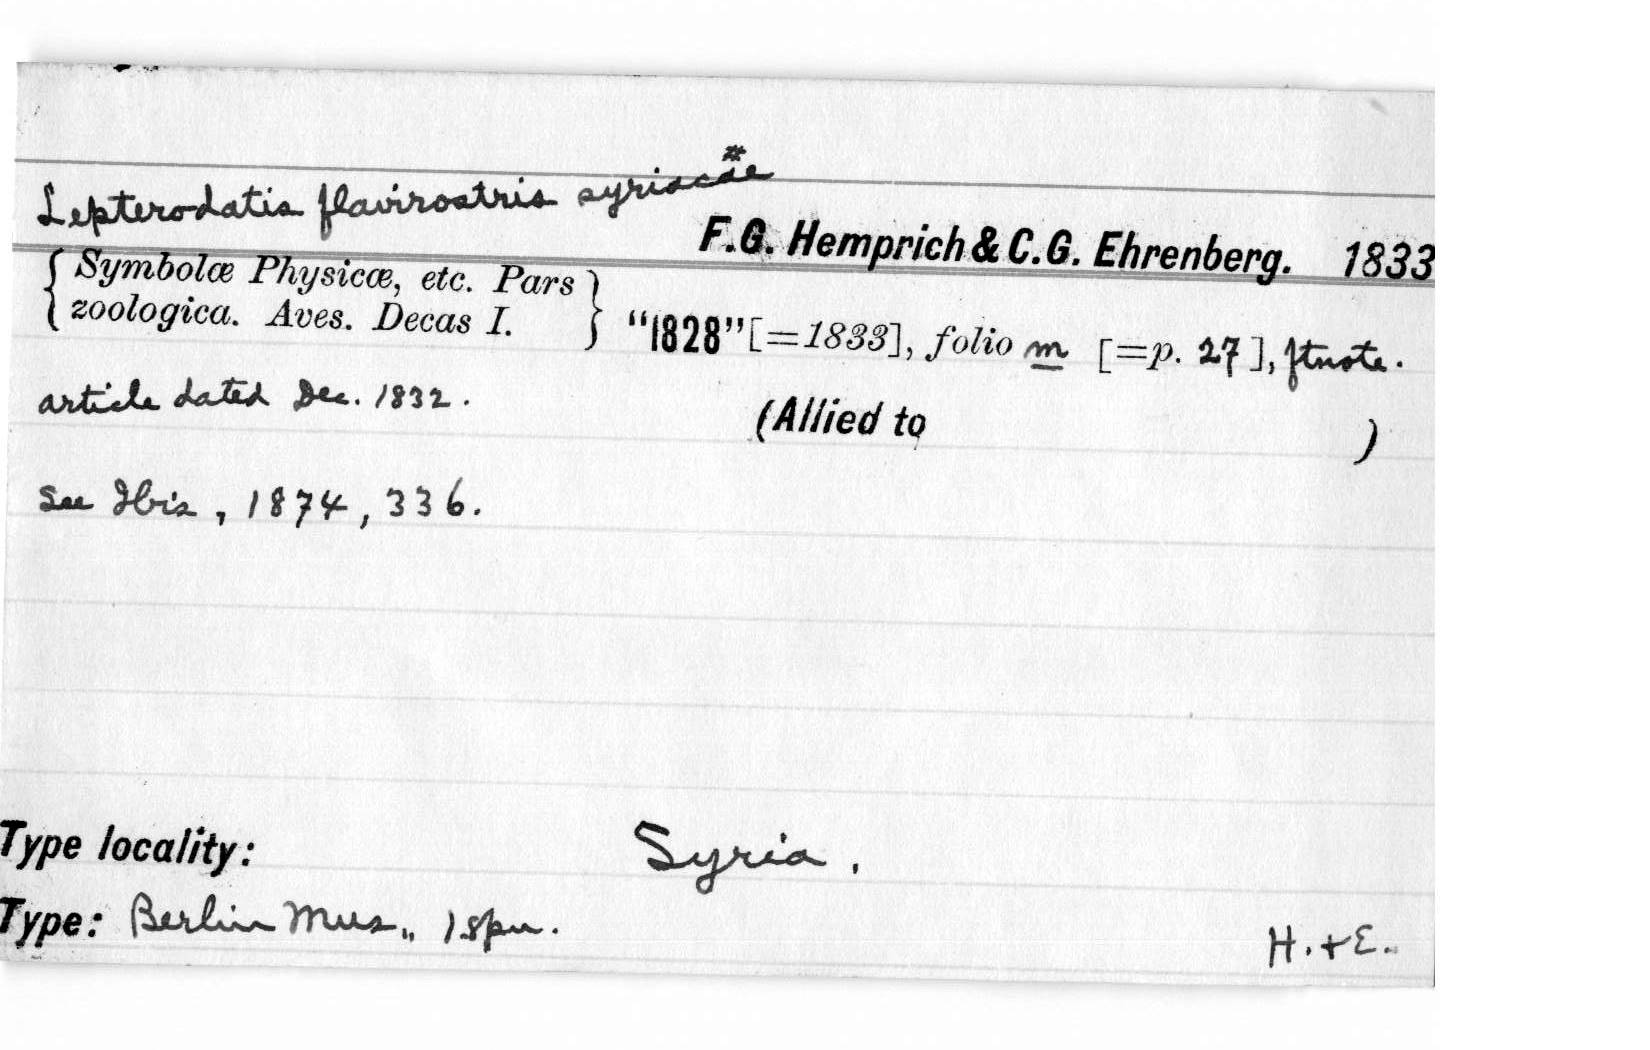 Lepterodatis flavirostris syriacae #
F.G. Hemprich & C.G. Ehrenberg. 1833
{ Symbolæ Physicæ, etc. Pars
zoologica. Aves. Decas I. } "1828" [=1833], folio m [=p. 27], ftnote.
article dated Dec. 1832.
(Allied to )
See Ibis, 1874, 336.
Type locality: Syria.
Type: Berlin Mus., 1 spn.
H. + E.